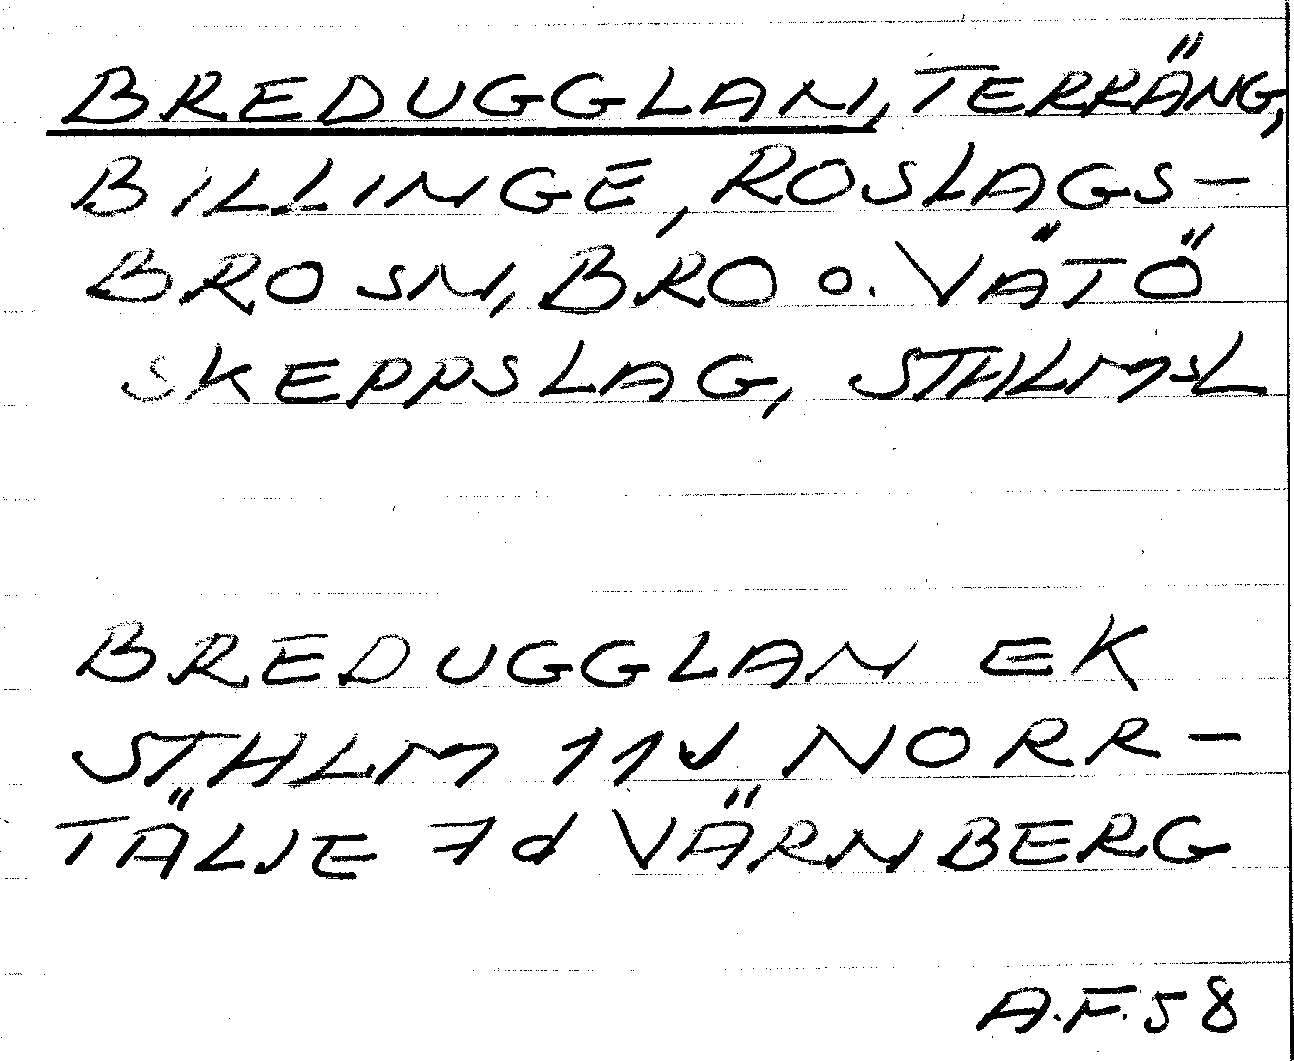 BREDUGGLAN, TERRÄNG,
BILLINGE, ROSLAGS-
BRO SN, BRO o. VÄTÖ
SKEPPSLAG, STHLMSL
BREDUGGLAN EK
STHLM 11d NORR-
TÄLJE 7d VÄRNBERG
A.F. 58